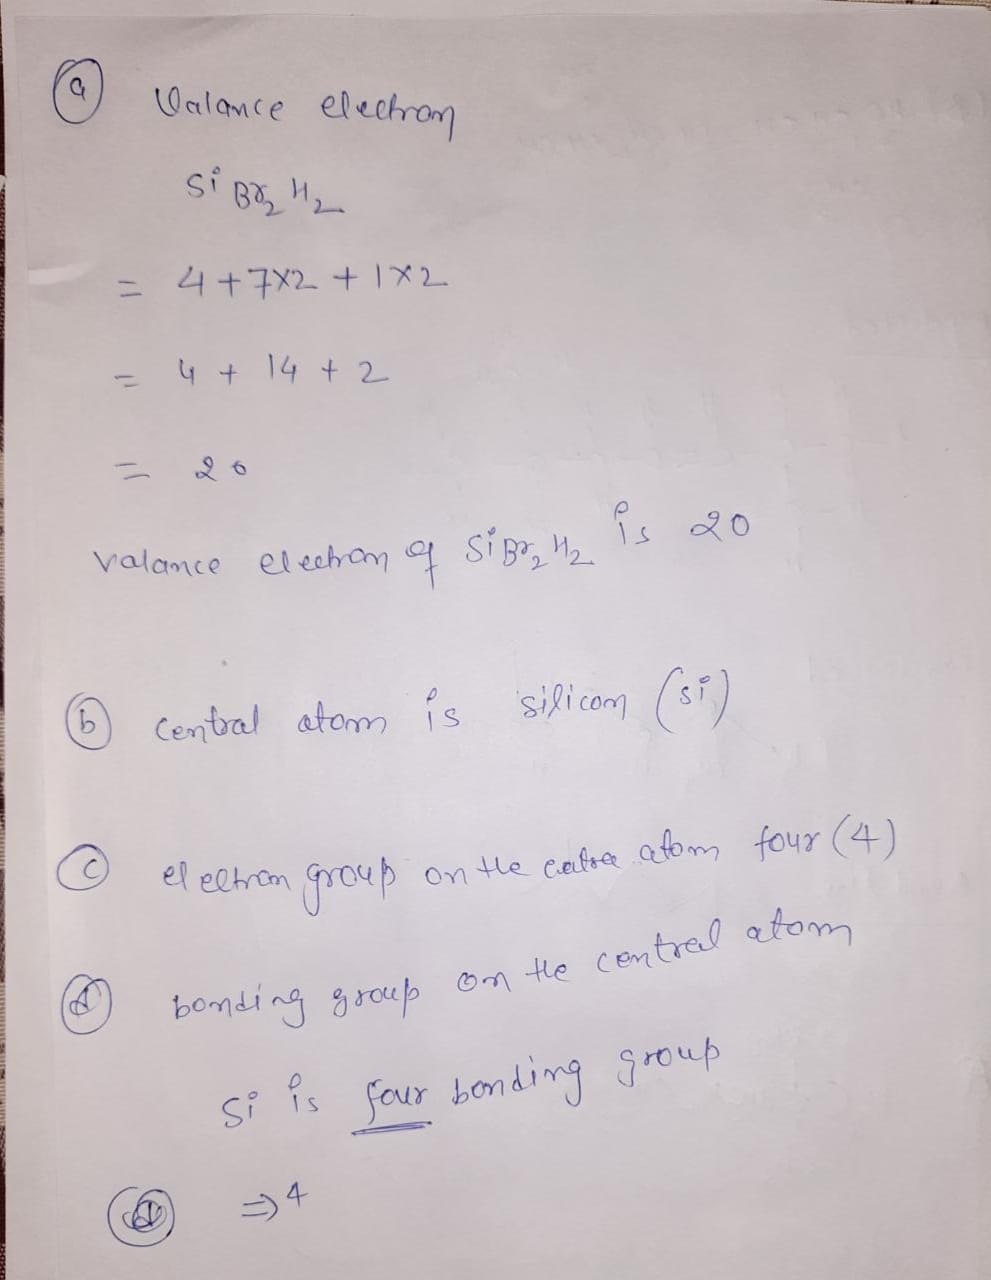 a Valance electron
Si Br2 H2
= 4+7x2 + 1x2
= 4 + 14 + 2
= 20
valance electron of SiBr2 H2 is 20
b central atom is silicon (si)
c electron group on the atom four (4)
d bonding group on the central atom
Si is four bonding group
d ⇒ 4